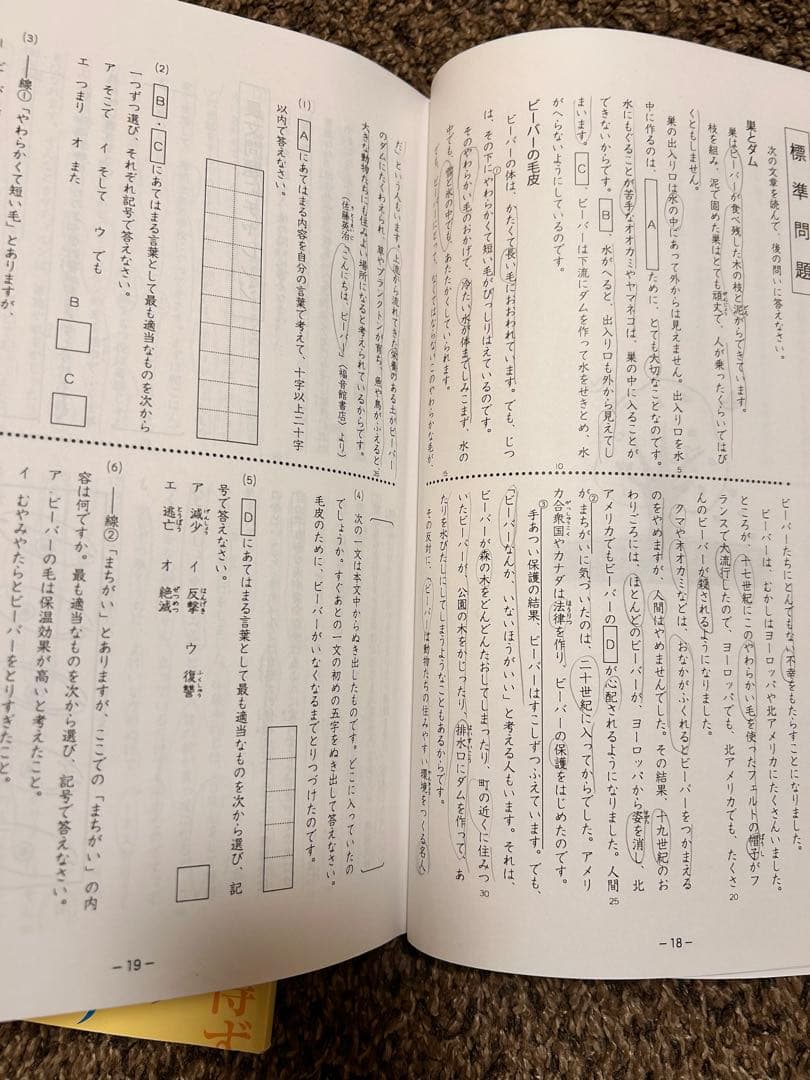 標準問題
次の文章を読んで、後の問いに答えなさい。
巣とダム
巣はビーバーが食べ残した木の枝と泥からできています。
枝を組み、泥で固めた巣はとても頑丈で、人が乗ったくらいではび
くともしません。
巣の出入り口は水の中にあって外からは見えません。出入り口を水
中に作るのは、 A ために、とても大切なことなのです。
水にもぐることが苦手なオオカミやヤマネコは、巣の中に入ることが
できないからです。 B 、水がへると、出入り口も外から見えてし
まいます。 C 、ビーバーは下流にダムを作って水をせきとめ、水
がへらないようにしているのです。
ビーバーの毛皮
ビーバーの体は、かたくて長い毛におおわれています。でも、じつ
は、その下に①やわらかくて短い毛がびっしりはえているのです。
そのやわらかい毛のおかげで、冷たい水が体までしみこまず、水の
中でも、雪と氷の中でも、あたたかくしていられます。
でも、ビーバーにとって、なくてはならないこのやわらかな毛が、
ビーバーたちにとんでもない不幸をもたらすことになりました。
ビーバーは、むかしはヨーロッパや北アメリカにたくさんいました。
ところが、十七世紀にこのやわらかい毛を使ったフェルトの帽子がフ
ランスで大流行したので、ヨーロッパでも、北アメリカでも、たくさ
んのビーバーが殺されるようになりました。
クマやオオカミなどは、おなかがふくれるとビーバーをつかまえる
のをやめますが、人間はやめませんでした。その結果、十九世紀のお
わりごろには、ほとんどのビーバーが、ヨーロッパから姿を消し、北
アメリカでもビーバーの D が心配されるようになりました。人間
が②まちがいに気づいたのは、二十世紀に入ってからでした。アメリ
カ合衆国やカナダは法律を作り、ビーバーの保護をはじめたのです。
③手あつい保護の結果、ビーバーはすこしずつふえています。でも、
「ビーバーなんか、いないほうがいい」と考える人もいます。それは、
ビーバーが森の木をどんどんたおしてしまったり、町の近くに住みつ
いたビーバーが、公園の木をかじったり、排水口にダムを作って、あ
たりを水びたしにしてしまうようなこともあるからです。
その反対に、「ビーバーは動物たちの住みやすい環境をつくる名人
だ」という人もいます。上流から流れてきた栄養のある土がビーバー
のダムにたくわえられ、草やプランクトンが育ち、魚や鳥がふえると、
大きな動物たちにも住みよい場所になると考えられているからです。
(佐藤英治「こんにちは、ビーバー」〈福音館書店〉より)
5
10
15
20
25
30
35
—18—
(1) A にあてはまる内容を自分の言葉で考えて、十字以上二十字
以内で答えなさい。
(2) B ・ C にあてはまる言葉として最も適当なものを次から
一つずつ選び、それぞれ記号で答えなさい。
ア そこで イ そして ウ でも
エ つまり オ また
B
C
(3) ——線①「やわらかくて短い毛」とありますが、
(4) 次の一文は本文中からぬき出したものです。どこに入っていたの
でしょうか。すぐあとの一文の初めの五字をぬき出して答えなさい。
毛皮のために、ビーバーがいなくなるまでとりつづけたのです。
(5) D にあてはまる言葉として最も適当なものを次から選び、記
号で答えなさい。
ア 減少 イ 反撃 ウ 復讐
エ 逃亡 オ 絶滅
(6) ——線②「まちがい」とありますが、ここでの「まちがい」の内
容は何ですか。最も適当なものを次から選び、記号で答えなさい。
ア ビーバーの毛は保温効果が高いと考えたこと。
イ むやみやたらとビーバーをとりすぎたこと。
—19—
得ず